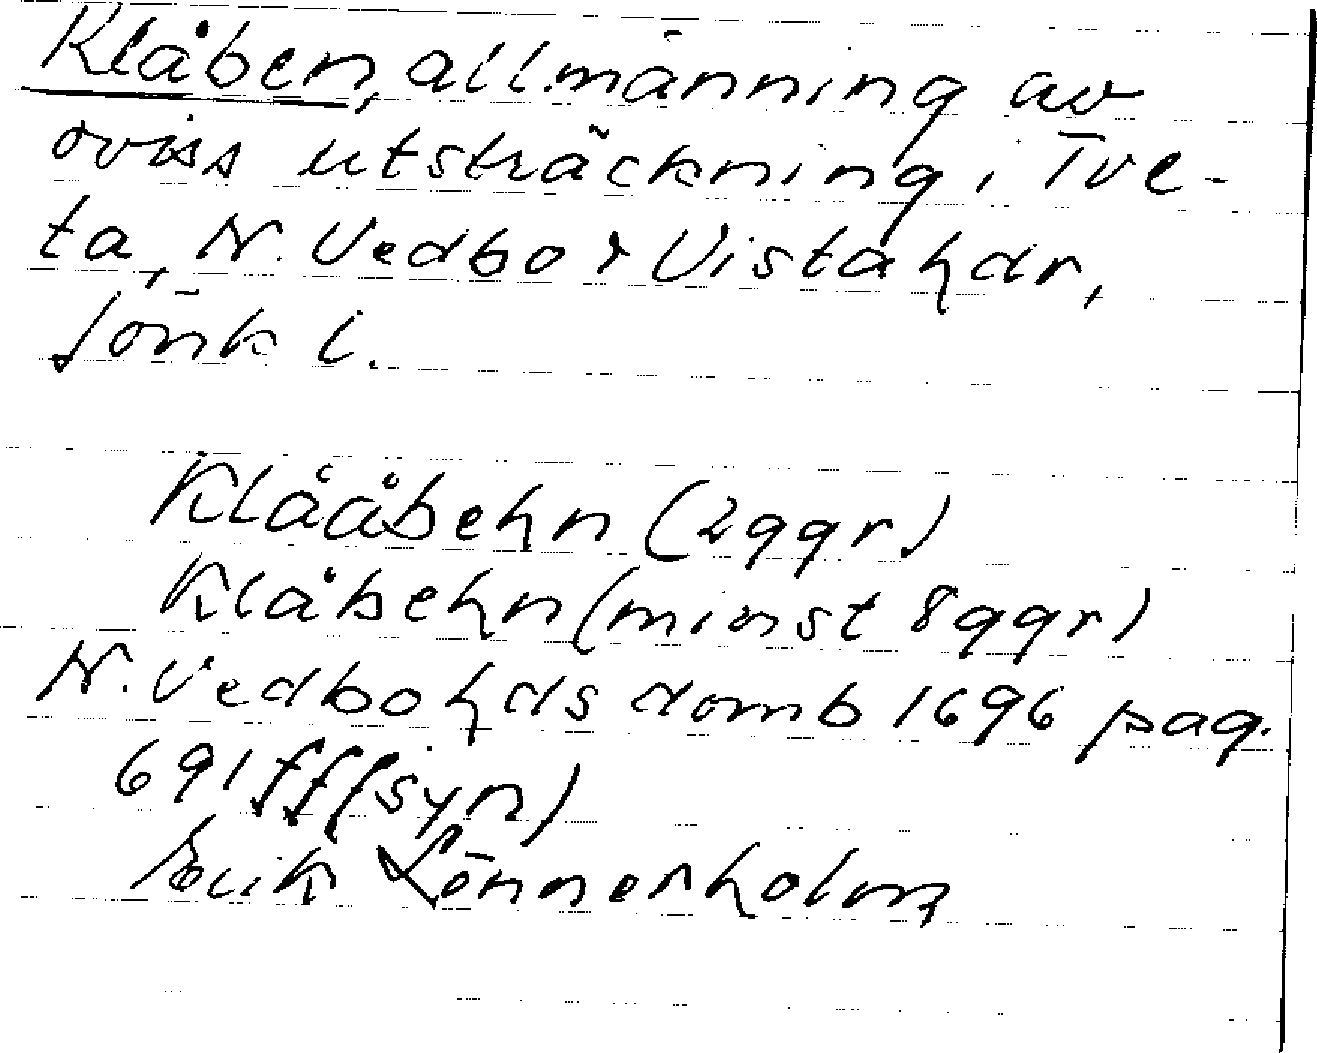 Klåben, allmänning av
oviss utsträckning i Tve-
ta, N. Vedbo & Vista hdr,
Jönk l.
Klååbehn (2 ggr)
Klåbehn (minst 8 ggr)
N. Vedbo hds domb 1696 pag.
691 ff (syn)
Erik Lönnerholm